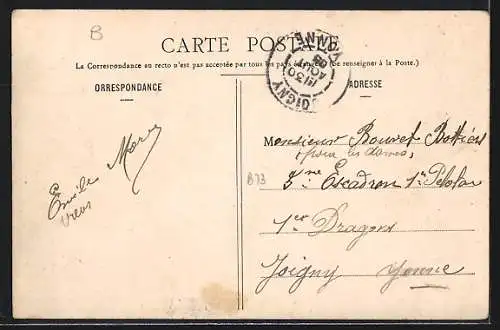 B
CARTE POSTALE
La Correspondance au recto n'est pas acceptée par tous les pays étrangers (Se renseigner à la Poste.)
ORRESPONDANCE
ADRESSE
JOIGNY
YONNE
AOUT
08
Monsieur Bouvet
(pour les dames)
B73
5me Escadron 1er Peloton
1er Dragons
Joigny Yonne
Emile